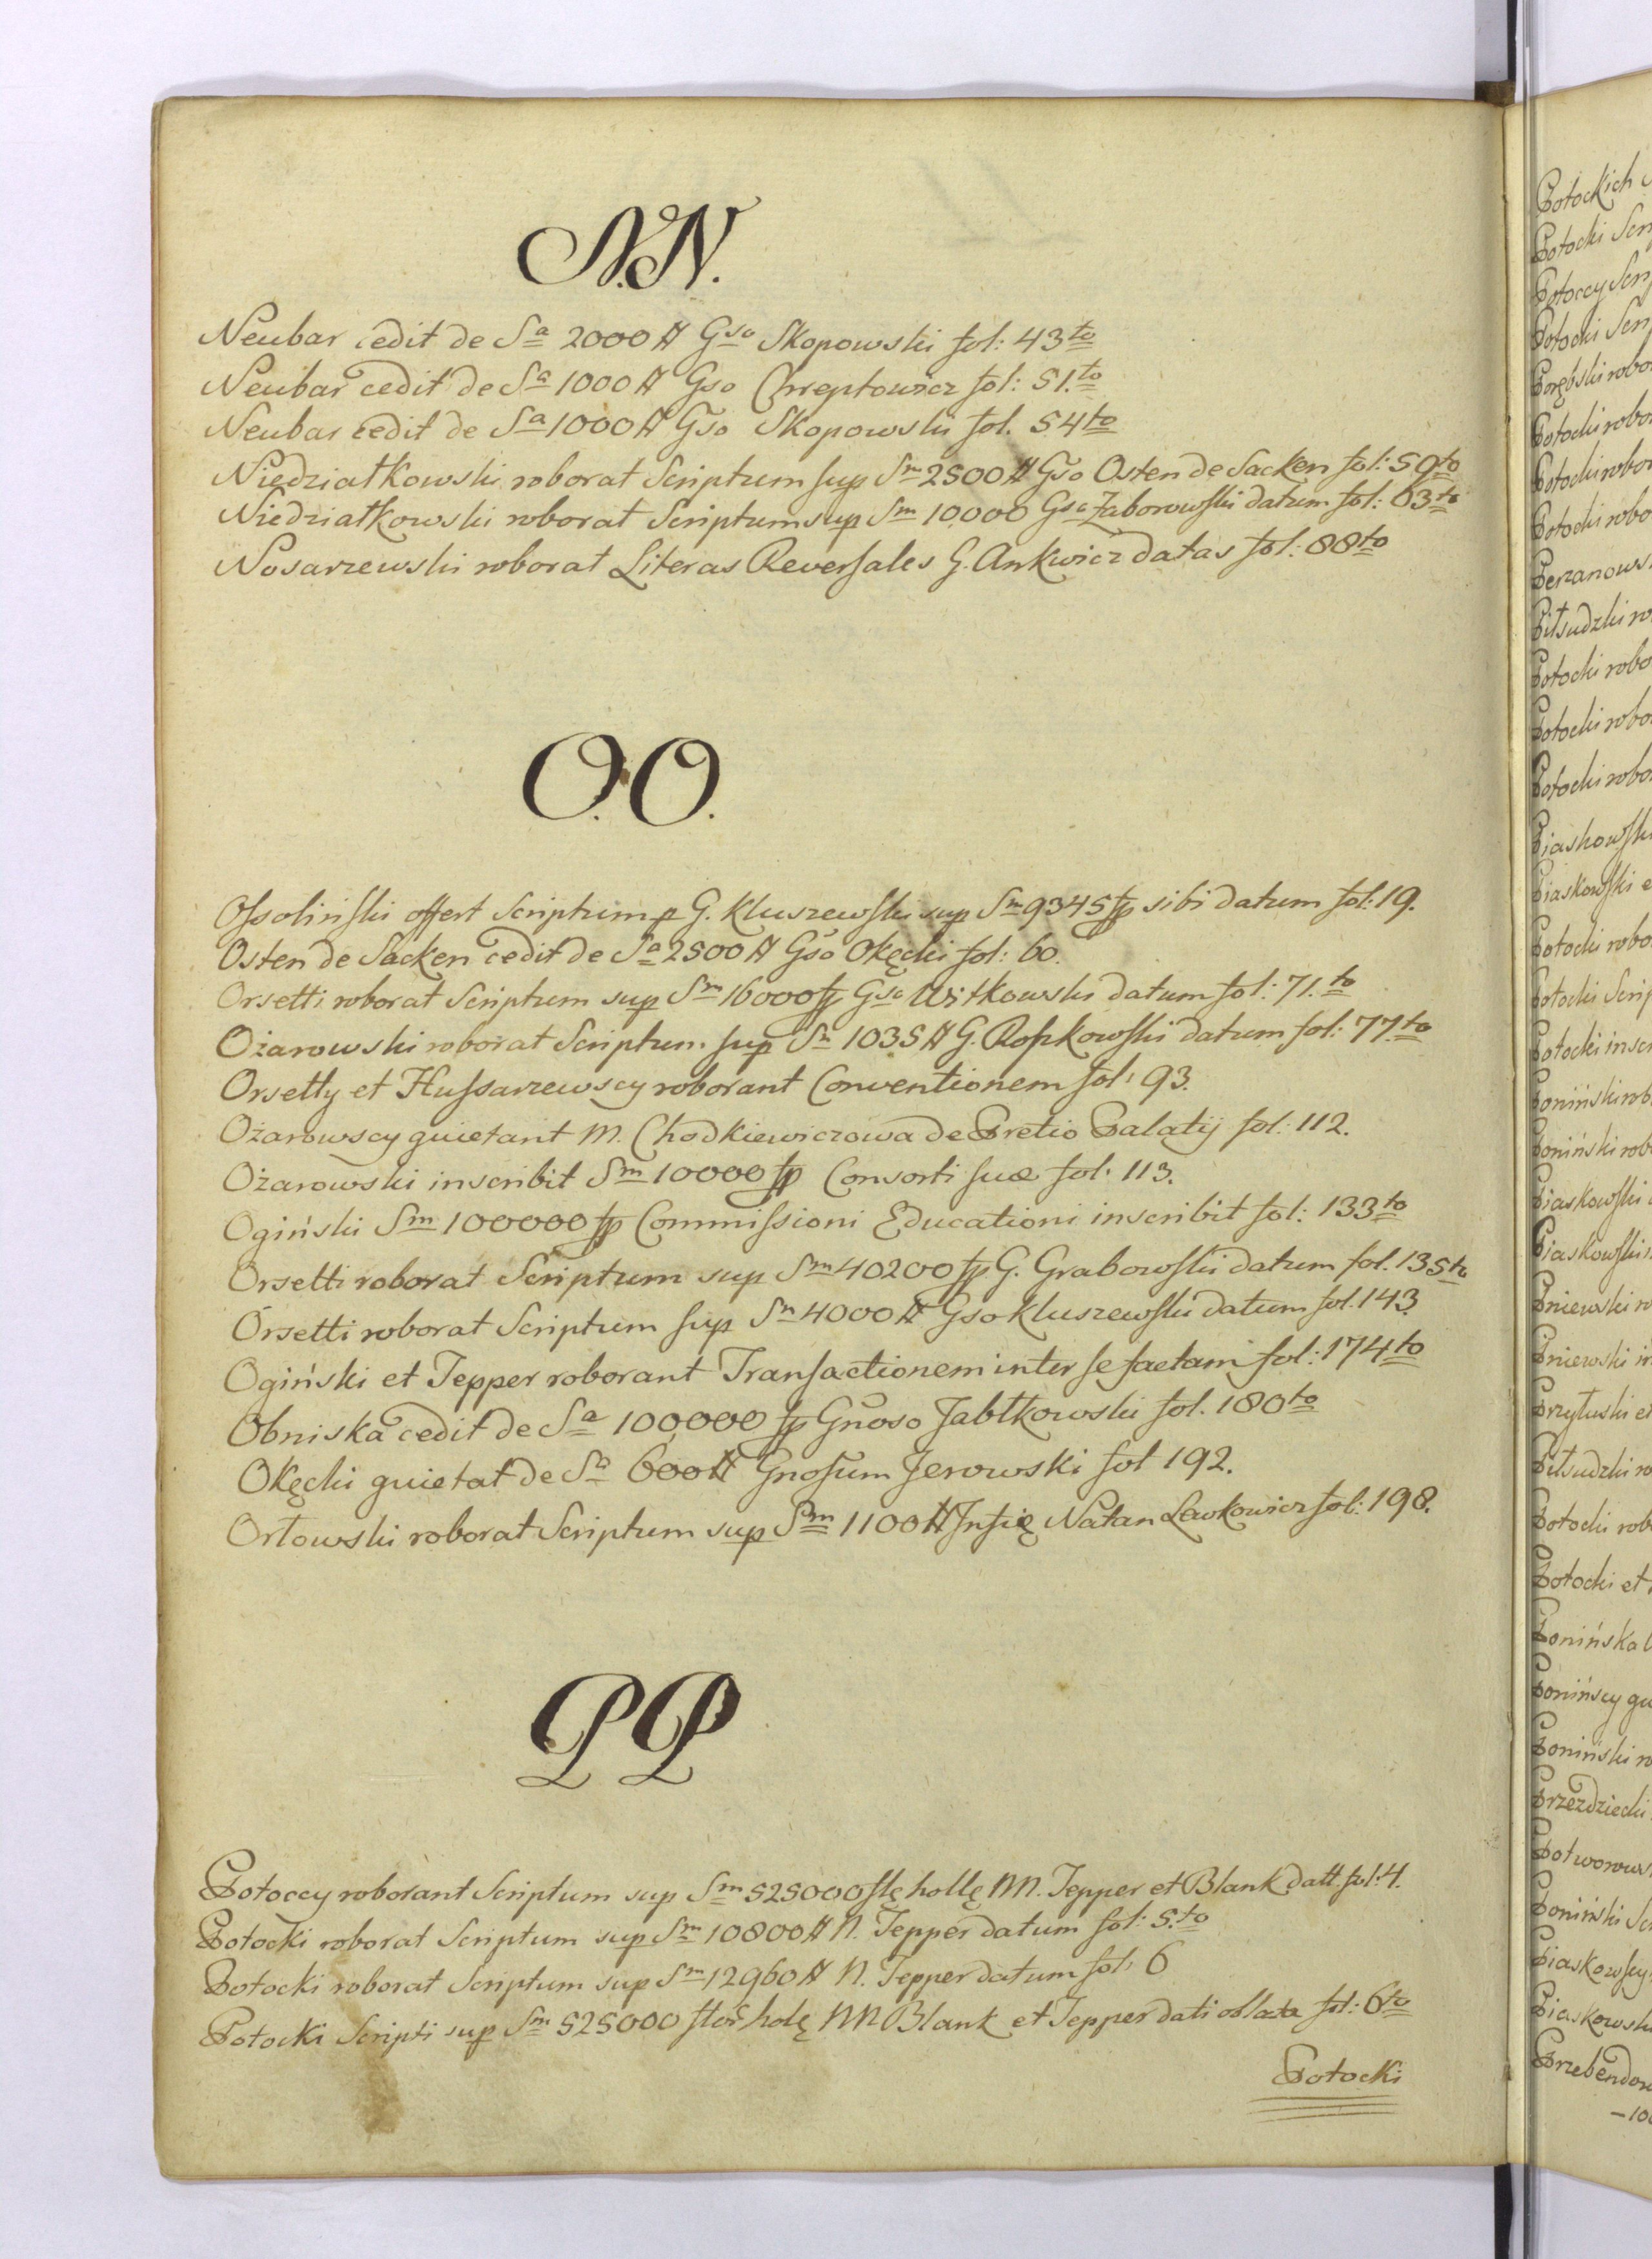 N.N.
Neubar cedit de Sa 2000 # Gso Skopowski fol: 43to
Neubar cedit de Sa 1000 # Gso Chreptowicz fol: 51.to
Neubar cedit de Sa 1000 # Gso Skopowski fol. 54to
Niedziałkowski roborat Scriptum sup Sm 2500 # Gso Osten de Sacken fol: 59to
Niedziałkowski roborat Scriptum sup Sm 10,000 Gso Zaborowski datum fol: 63to
Nosarzewski roborat Literas Reversales G. Ankwicz datas fol: 88to
O.O.
Ossoliński offert Scriptum p G. Kluszewski sup Sm 9345 fp sibi datum fol: 19.
Osten de Sacken cedit de Sa 2500 # Gso Okęcki fol: 60.
Orsetti roborat Scriptum sup Sm 16000 fp Gso Witkowski datum fol: 71.to
Ożarowski roborat Scriptum sup Sm 1035 # G. Roszkowski datum fol: 77to
Orsetty et Hussarzewscy roborant Conventionem fol: 93.
Ożarowscy quietant M. Chodkiewiczowa de Pretio Palatij fol: 112.
Ożarowski inscribit Sm 10000 fp Consorti suæ fol: 113.
Ogiński Sm 100000 fp Commissioni Educationi inscribit fol: 133to
Orsetti roborat Scriptum sup Sm 40200 fp G. Grabowski datum fol. 135to
Orsetti roborat Scriptum sup Sm 4000 # Gso Kluszewski datum fol. 143.
Ogiński et Tepper roborant Transactionem inter se factam fol: 174to
Obniska cedit de Sa 100,000 fp Gnoso Jabłkowski fol. 180to
Okęcki quietat de Sa 600 # Gnosum Jerowski fol 192.
Orłowski roborat Scriptum sup Sm 1100 # Natan Lewkowicz fol: 198.
PP
Potoccy roborant Scriptum sup Sm 525000 flę hollę M. Tepper et Blank datt fol: 4.
Potocki roborat Scriptum sup Sm 10800 # N. Tepper datum fol: 5.to
Potocki roborat Scriptum sup Sm 12960 # N. Tepper datum fol: 6
Potocki Scripti sup Sm 525000 flor holę M Blank et Tepper dati oblata fol: 6to
Potocki
Potockich
Potocki
Potoccy
Potocki
Porębski
Potocki
Potocki
Potocki
Piłsudzki
Potocki
Potocki
Potocki
Piaskowski
Piaskowski
Potocki
Potocki
Potocki
Poniński
Poniński
Piaskowski
Piaskowski
Pniewski
Pniewski
Przyłuski
Piłsudzki
Potocki
Potocki et
Ponińska
Ponińscy
Poniński
Przezdziecki
Poniński
Piaskowscy